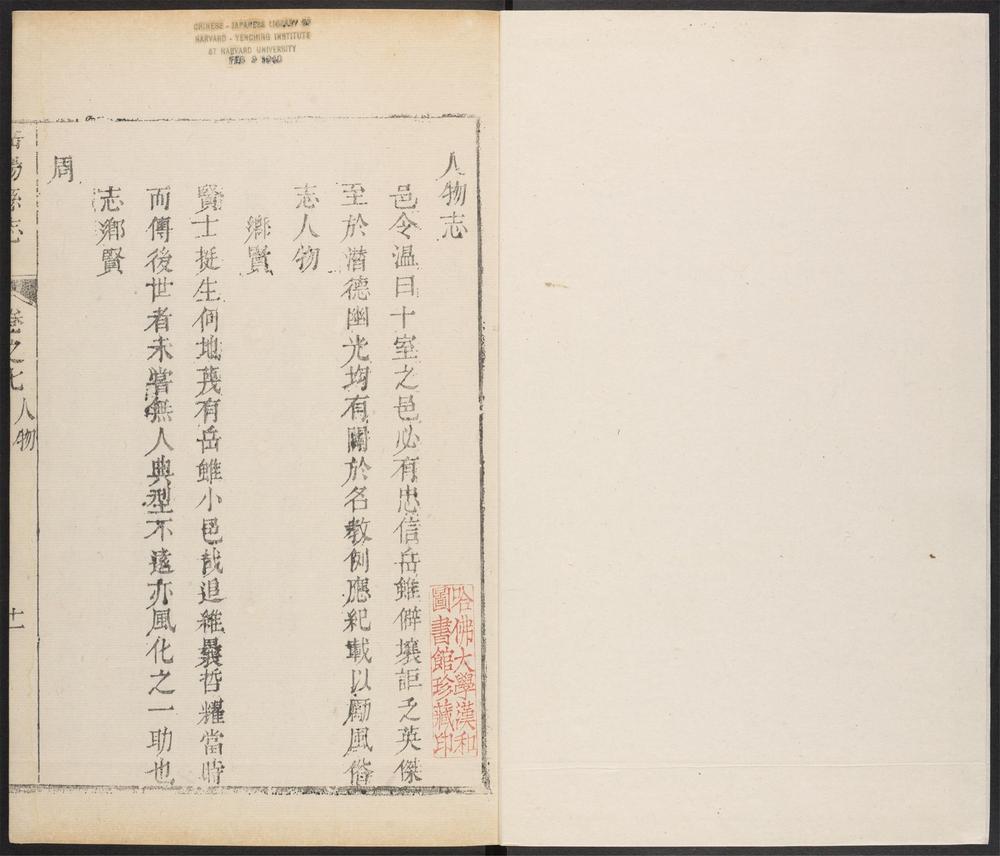 CHINESE - JAPANESE LIBRARY OF
HARVARD - YENCHING INSTITUTE
AT HARVARD UNIVERSITY
FEB 2 1940
人物志
邑令温曰十室之邑必有忠信岳雖僻壤詎乏英傑
至於潛德幽光均有關於名教例應紀載以勵風俗
志人物
鄉賢
賢士挺生何地蔑有岳雖小邑哉追維曩哲耀當時
而傳後世者未嘗無人典型不遠亦風化之一助也
志鄉賢
周
岳陽縣志
卷之七
人物
十一
哈佛大學漢和
圖書館珍藏印